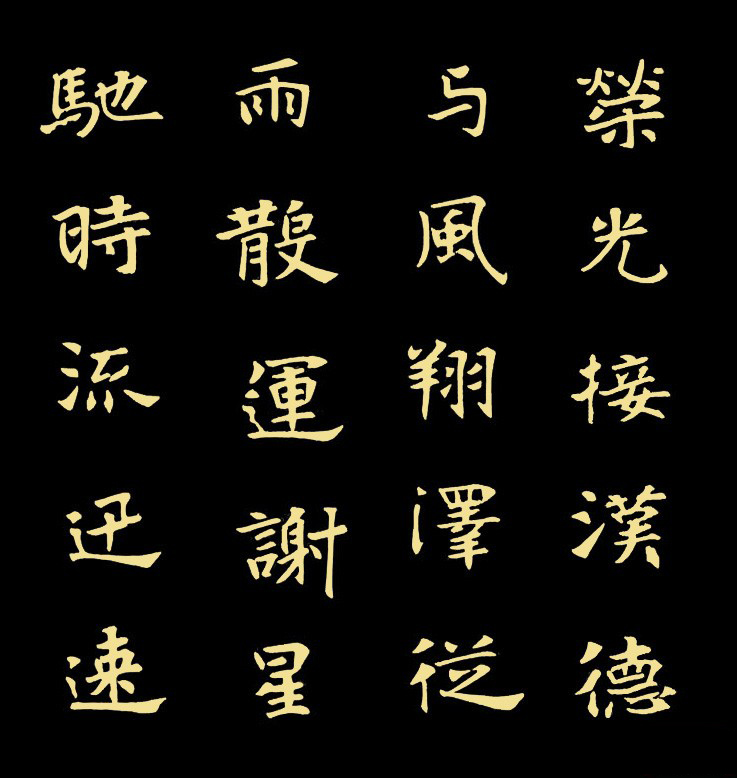 榮光接漢德
与風翔澤従
雨散運謝星
馳時流迅速